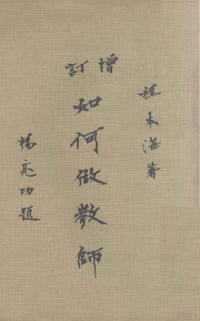 增訂
如何做教師
程本海著
楊亮功題